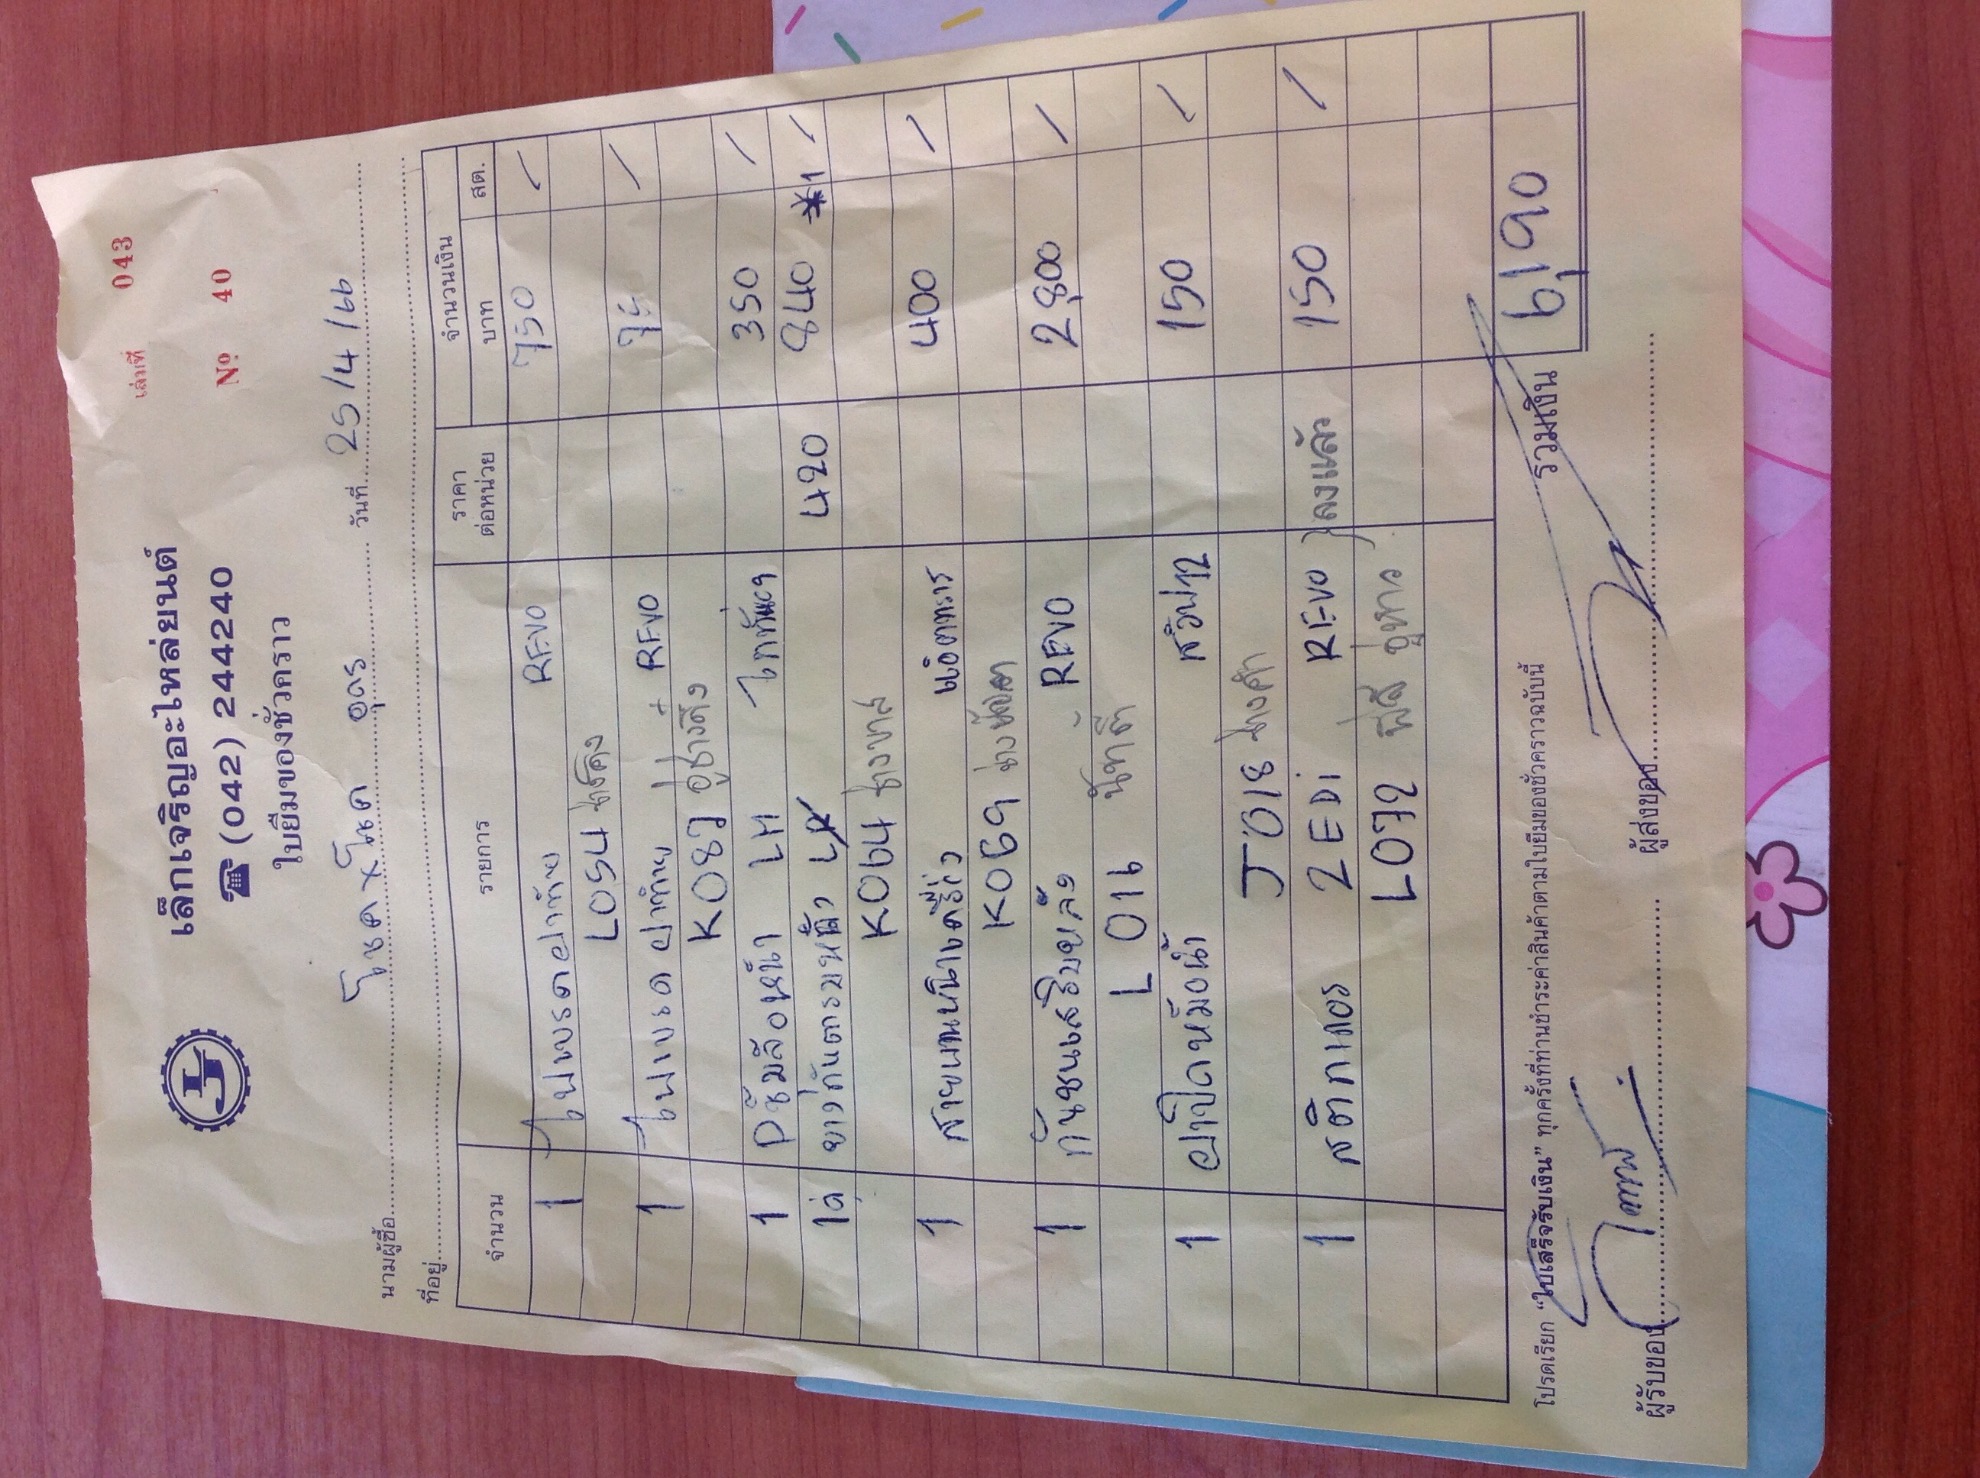 เล่มที่ 043
เล็กเจริญอะไหล่ยนต์
☎ (042) 244240
Nº 40
ใบยืมของชั่วคราว
นามผู้ซื้อ โชค อุดร วันที่ 25/4/66
ที่อยู่
จำนวน รายการ ราคาต่อหน่วย จำนวนเงิน
บาท สต.
1 ไฟเบรคฝาท้าย REVO 750 /
L054
1 ไฟเบรคฝาท้าย REVO /
K087 อู่ช่างตึ๋ง
1 Pซัมล้อหน้า LH ไททัน 350 /
1คู่ ยางกันตรมหน้า 420 840 *1 /
K064 ช่าง
1 สาย 400 /
K069
1 กันชนเสริมหลัง REVO 2,800 /
L016
1 ฝาปิดหม้อน้ำ 150 /
J018 ช่างคำ
1 สติกเกอร์ 2EDi REVO ลงแล้ว 150 /
L072 อู่ถาวร
รวมเงิน 6,190
โปรดเรียก “ใบเสร็จรับเงิน” ทุกครั้งที่ท่านชำระค่าสินค้าตามใบยืมของชั่วคราวฉบับนี้
ผู้รับของ ผู้ส่งของ